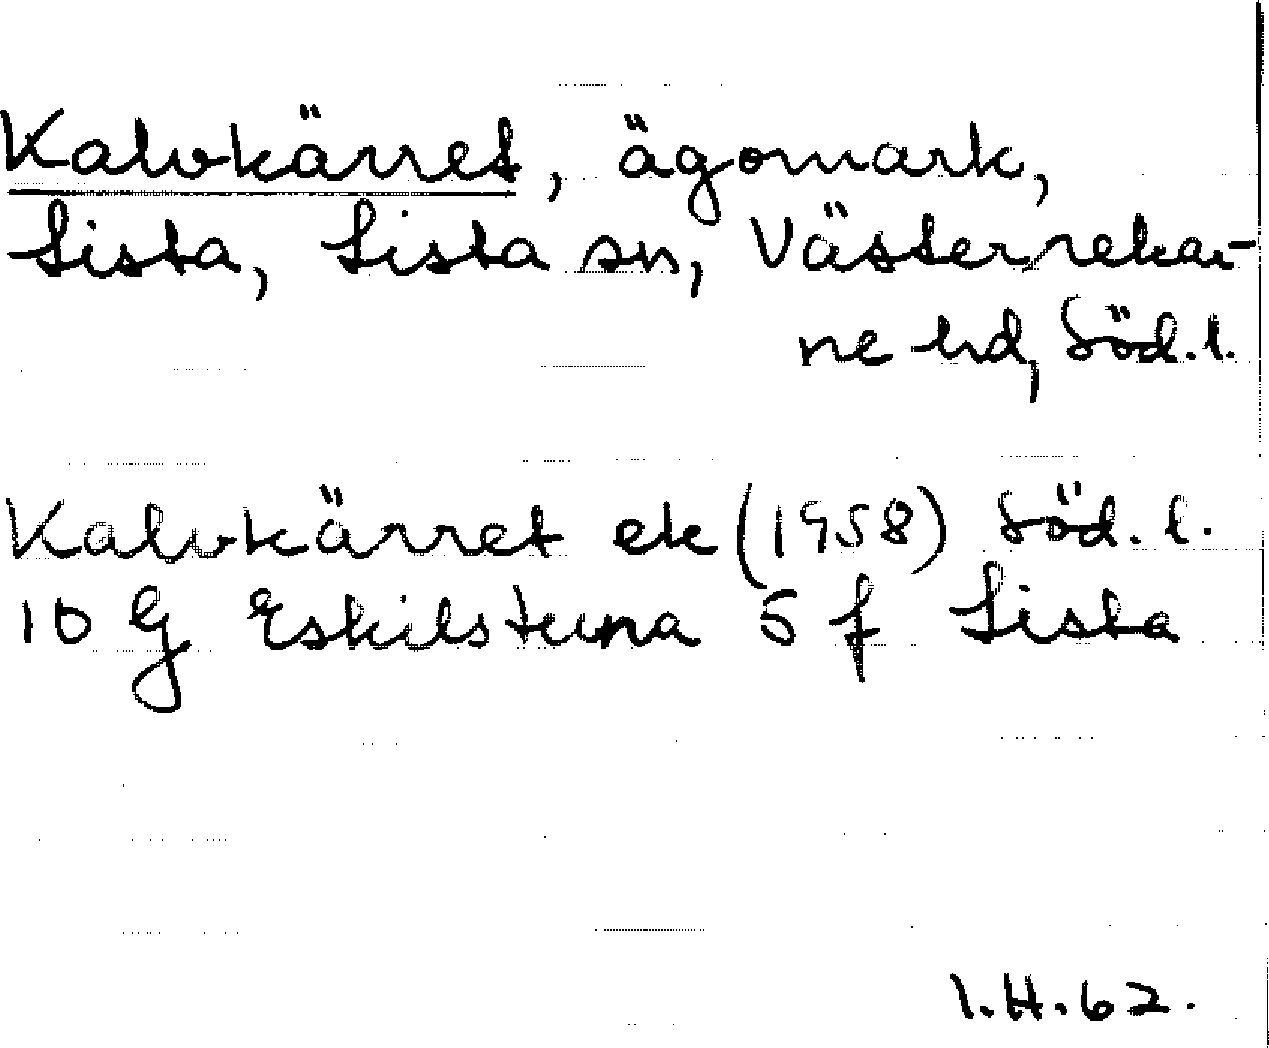 Kalvkärret, ägomark,
Lista, Lista sn, Västerrekar-
ne hd, Söd.l.
Kalvkärret ek (1958) Söd. l.
10 G Eskilstuna 5 f Lista
I.H.62.